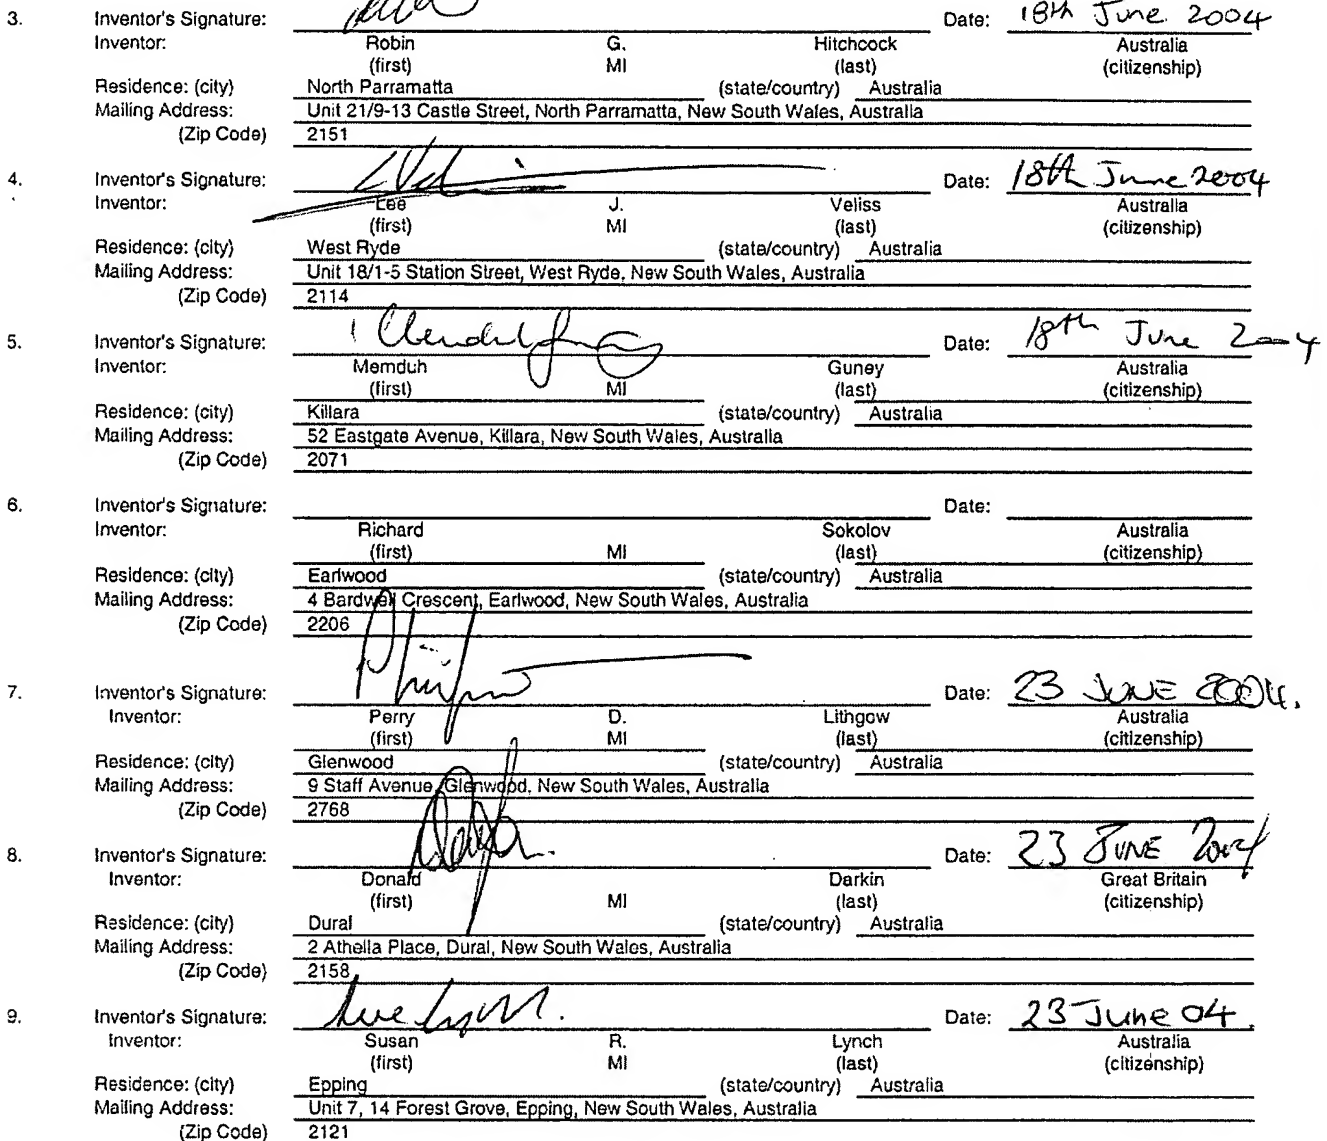 3. Inventor's Signature: Date: 18th June 2004
Inventor: Robin G. Hitchcock Australia
(first) MI (last) (citizenship)
Residence: (city) North Parramatta (state/country) Australia
Mailing Address: Unit 21/9-13 Castle Street, North Parramatta, New South Wales, Australia
(Zip Code) 2151
4. Inventor's Signature: Date: 18th June 2004
Inventor: Lee J. Veliss Australia
(first) MI (last) (citizenship)
Residence: (city) West Ryde (state/country) Australia
Mailing Address: Unit 18/1-5 Station Street, West Ryde, New South Wales, Australia
(Zip Code) 2114
5. Inventor's Signature: Date: 18th June 2004
Inventor: Memduh Guney Australia
(first) MI (last) (citizenship)
Residence: (city) Killara (state/country) Australia
Mailing Address: 52 Eastgate Avenue, Killara, New South Wales, Australia
(Zip Code) 2071
6. Inventor's Signature: Date:
Inventor: Richard Sokolov Australia
(first) MI (last) (citizenship)
Residence: (city) Earlwood (state/country) Australia
Mailing Address: 4 Bardwell Crescent, Earlwood, New South Wales, Australia
(Zip Code) 2206
7. Inventor's Signature: Date: 23 JUNE 2004.
Inventor: Perry D. Lithgow Australia
(first) MI (last) (citizenship)
Residence: (city) Glenwood (state/country) Australia
Mailing Address: 9 Staff Avenue, Glenwood, New South Wales, Australia
(Zip Code) 2768
8. Inventor's Signature: Date: 23 JUNE 2004
Inventor: Donald Darkin Great Britain
(first) MI (last) (citizenship)
Residence: (city) Dural (state/country) Australia
Mailing Address: 2 Athella Place, Dural, New South Wales, Australia
(Zip Code) 2158
9. Inventor's Signature: Sue Lynch. Date: 23 June 04.
Inventor: Susan R. Lynch Australia
(first) MI (last) (citizenship)
Residence: (city) Epping (state/country) Australia
Mailing Address: Unit 7, 14 Forest Grove, Epping, New South Wales, Australia
(Zip Code) 2121